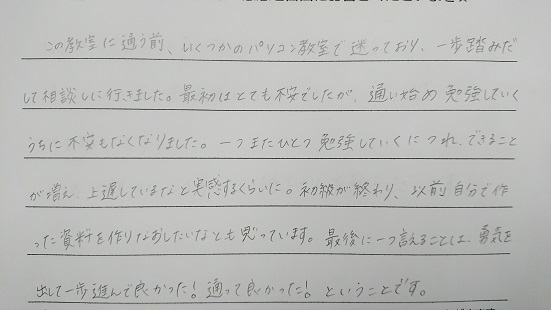 この教室に通う前、いくつかのパソコン教室で迷っており、一歩踏みだ
して相談しに行きました。最初はとても不安でしたが、通い始め勉強していく
うちに不安もなくなりました。一つまたひとつ勉強していくにつれ、できること
が増え、上達しているなと実感するくらいに。初級が終わり、以前自分で作
った資料を作りなおしたいなとも思っています。最後に一つ言えることは、勇気を
出して一歩進んで良かった!通って良かった!ということです。